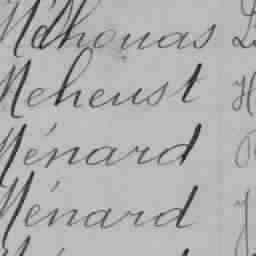 Méhouas
Meheust
Ménard
Ménard